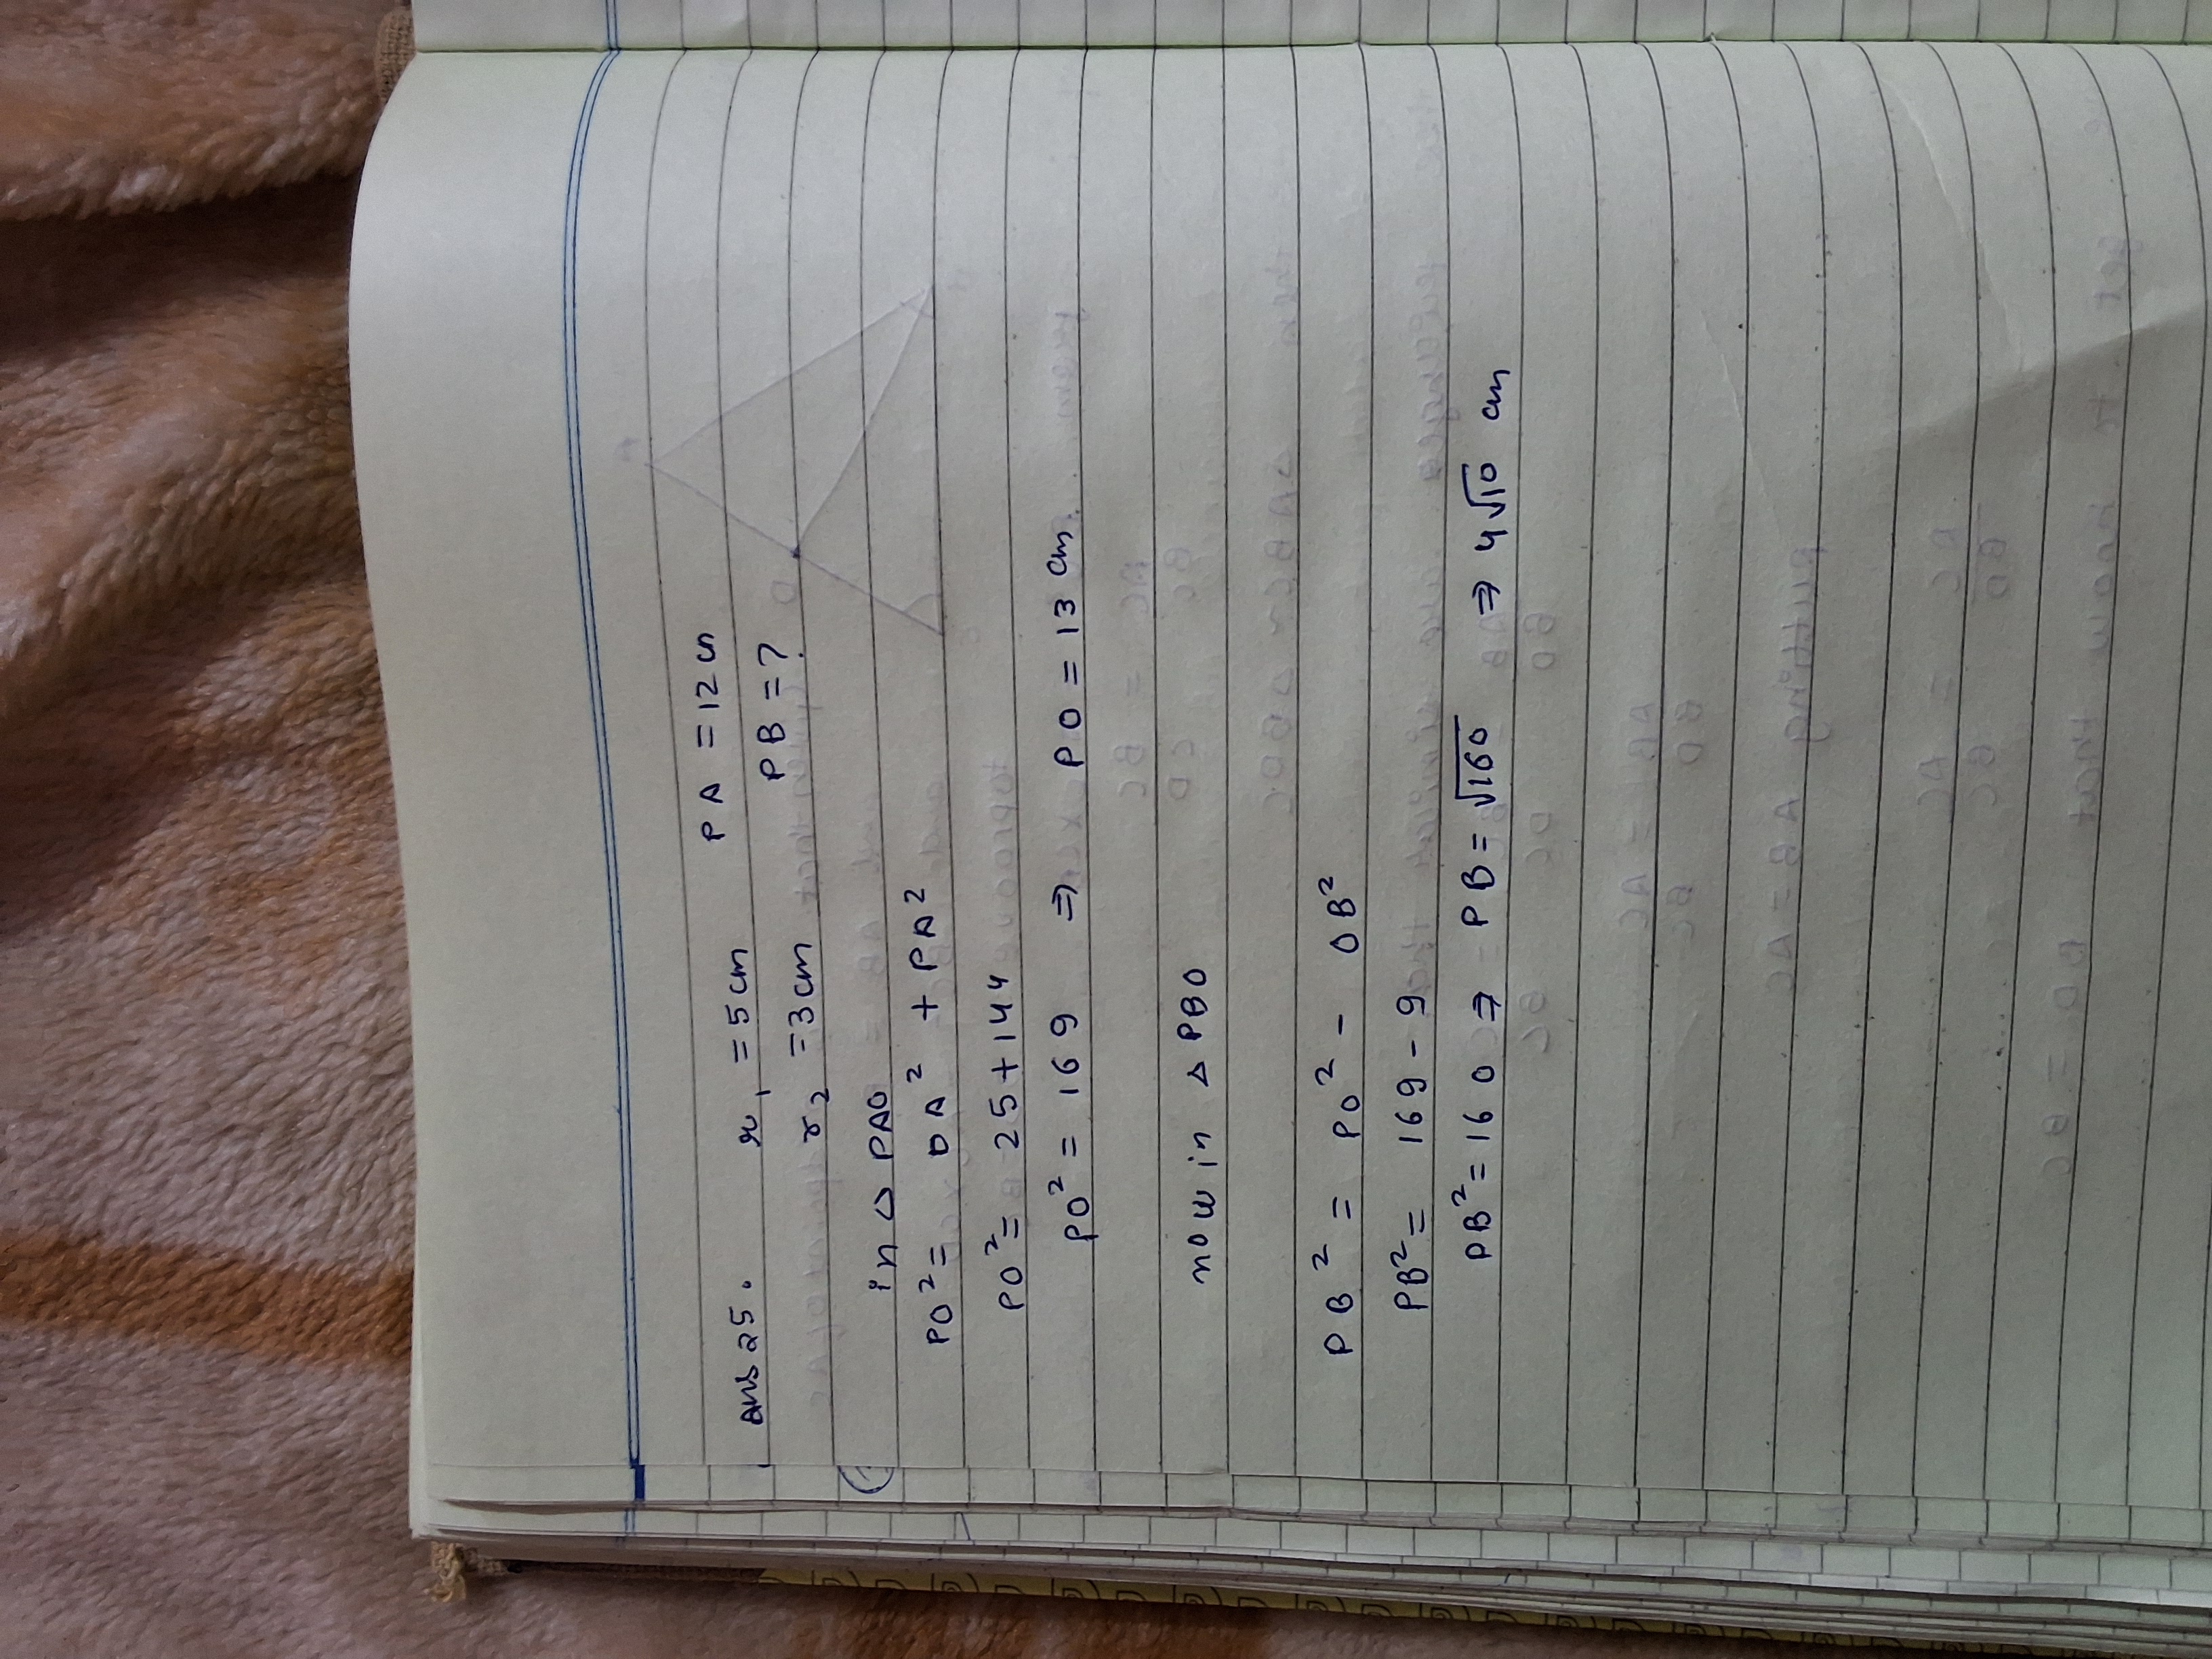 ans 25. r₁ = 5cm PA = 12 cm
r₂ = 3cm PB = ?
in △ PAO
PO² = OA² + PA²
PO² = 25 + 144
PO² = 169 ⇒ PO = 13 cm.
now in △ PBO
PB² = PO² - OB²
PB² = 169 - 9
PB² = 160 ⇒ PB = √160 ⇒ 4√10 cm